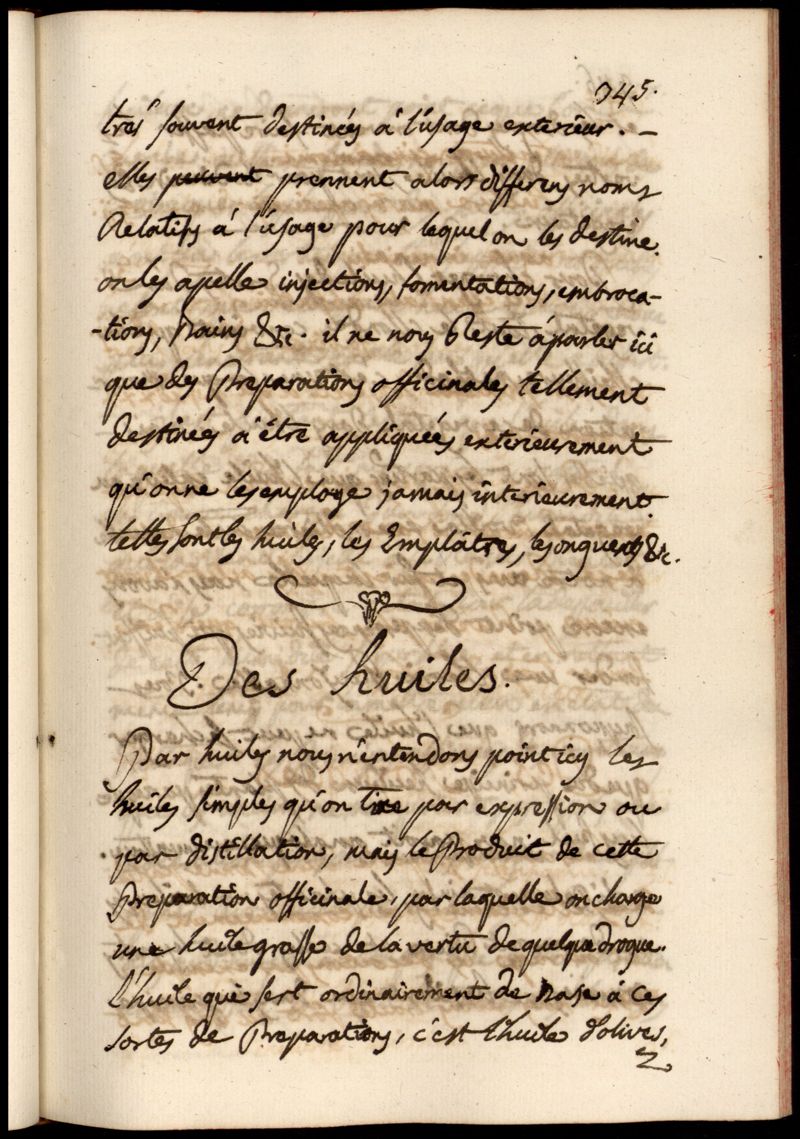 345.
trés souvent destinées à l'usage exterieur. –
elles peuvent prennent alors differens noms
Relatifs à l'usage pour lequel on les destine.
on les apelle injections, fomentations, embroca-
-tions, bains &c. il ne nous Reste à parler ici
que des Preparations officinales tellement
destinées à être appliquées exterieurement
qu'on ne les employe jamais interieurement.
telles sont les huiles, les Emplâtres, les onguents &c.
Des huiles.
Par huiles nous n'entendons point icy les
huiles simples qu'on tire par expression ou
par distillation, mais le Produit de cette
Preparation officinale, par laquelle on charge
une huile grasse de la vertu de quelque drogue.
l'huile qui sert ordinairement de base à ces
sortes de Preparations, c'est l'huile d'olives,